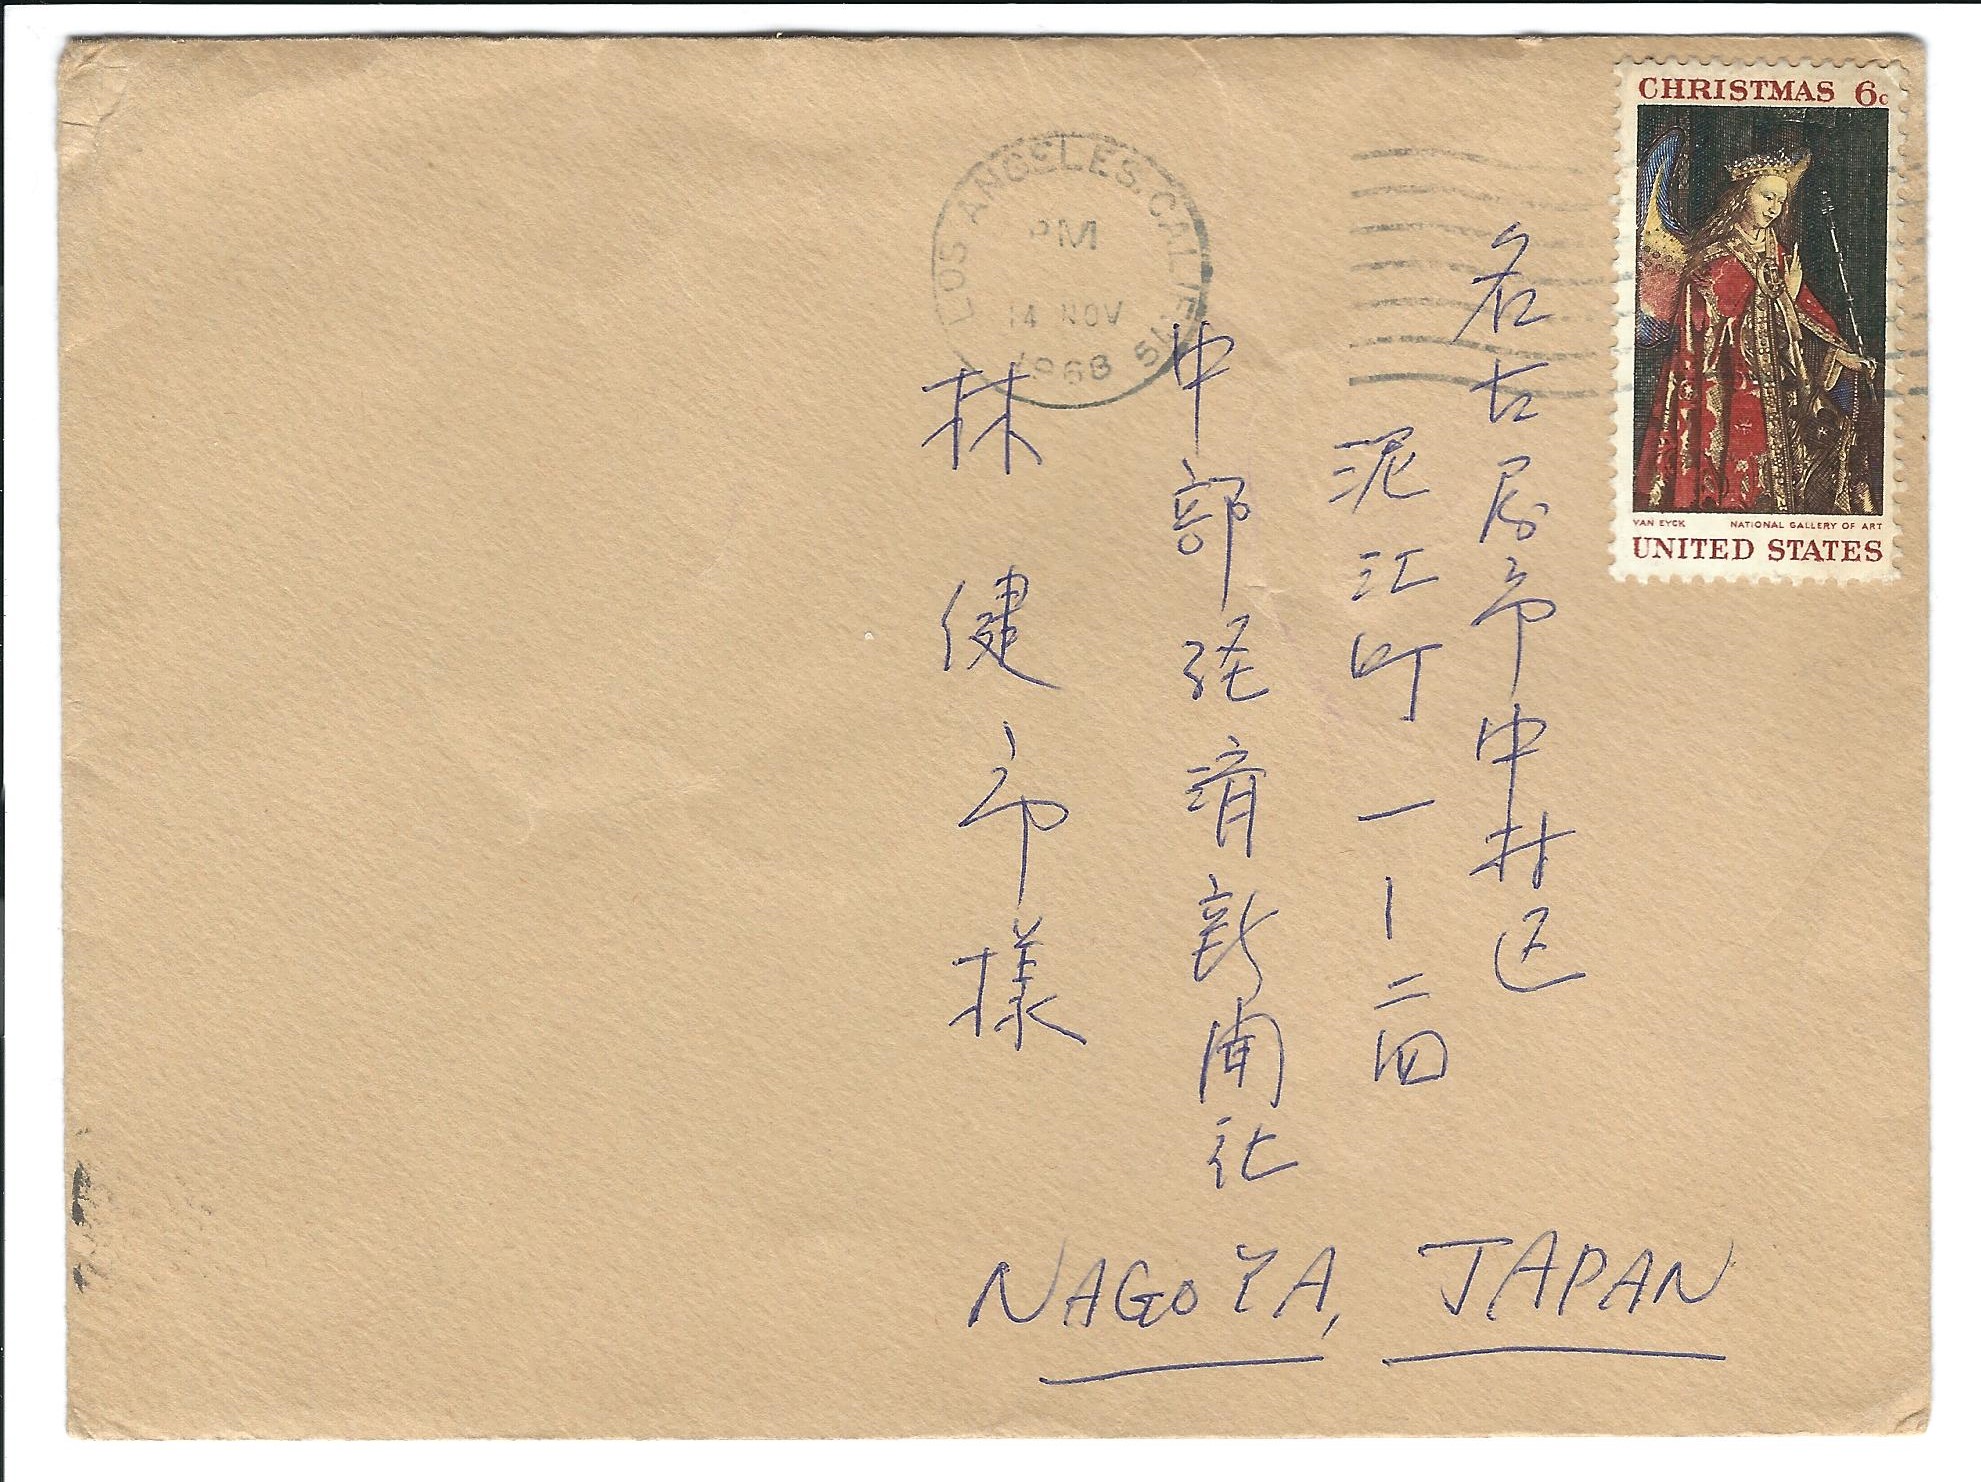 CHRISTMAS 6c
VAN EYCK NATIONAL GALLERY OF ART
UNITED STATES
LOS ANGELES, CALIF
PM
14 NOV
1968
名古屋市中村区
泥江町一ー二四
中部経済新聞社
林健市様
NAGOYA, JAPAN